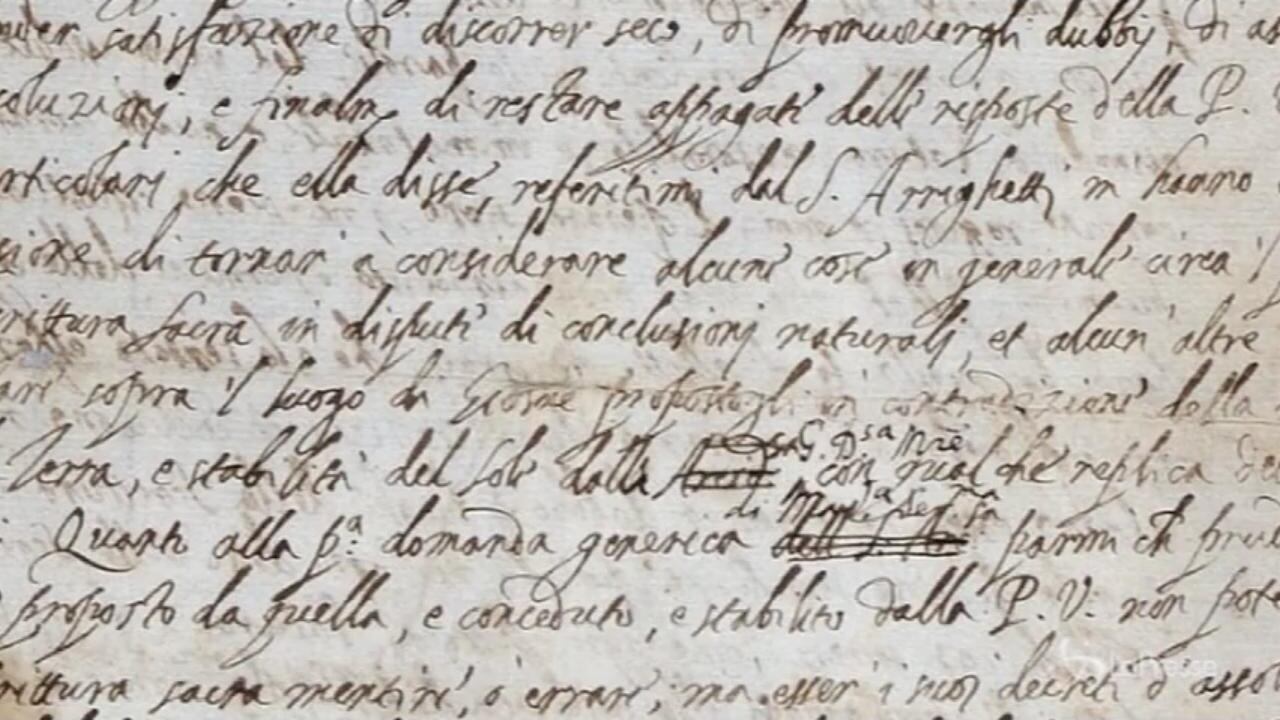 satisfazione di discorrer seco, di promuovergli dubbij, di
soluzionj, e finalm. di restare appagati delle risposte della P.
rticolarj che ella disse, referitimi dal S. Arrighetti m hanno
sione di tornar à considerare alcune cose in generale circa 'l
rittura sacra in dispute di conclusionj naturalj, et alcun' altre
are sopra 'l luogo di Giosuè propostogli in contradizione della
Terra, e stabilità del Sole dalla G. D.sa M.re con qualche replica
di Mad.a Ser.ma
Quanto alla p.a domanda generica parmi ch
proposto da quella, e conceduto, e stabilito dalla P. V. non
rittura sacra mentire, ò errare, ma esser i suoi decreti d
LaPresse